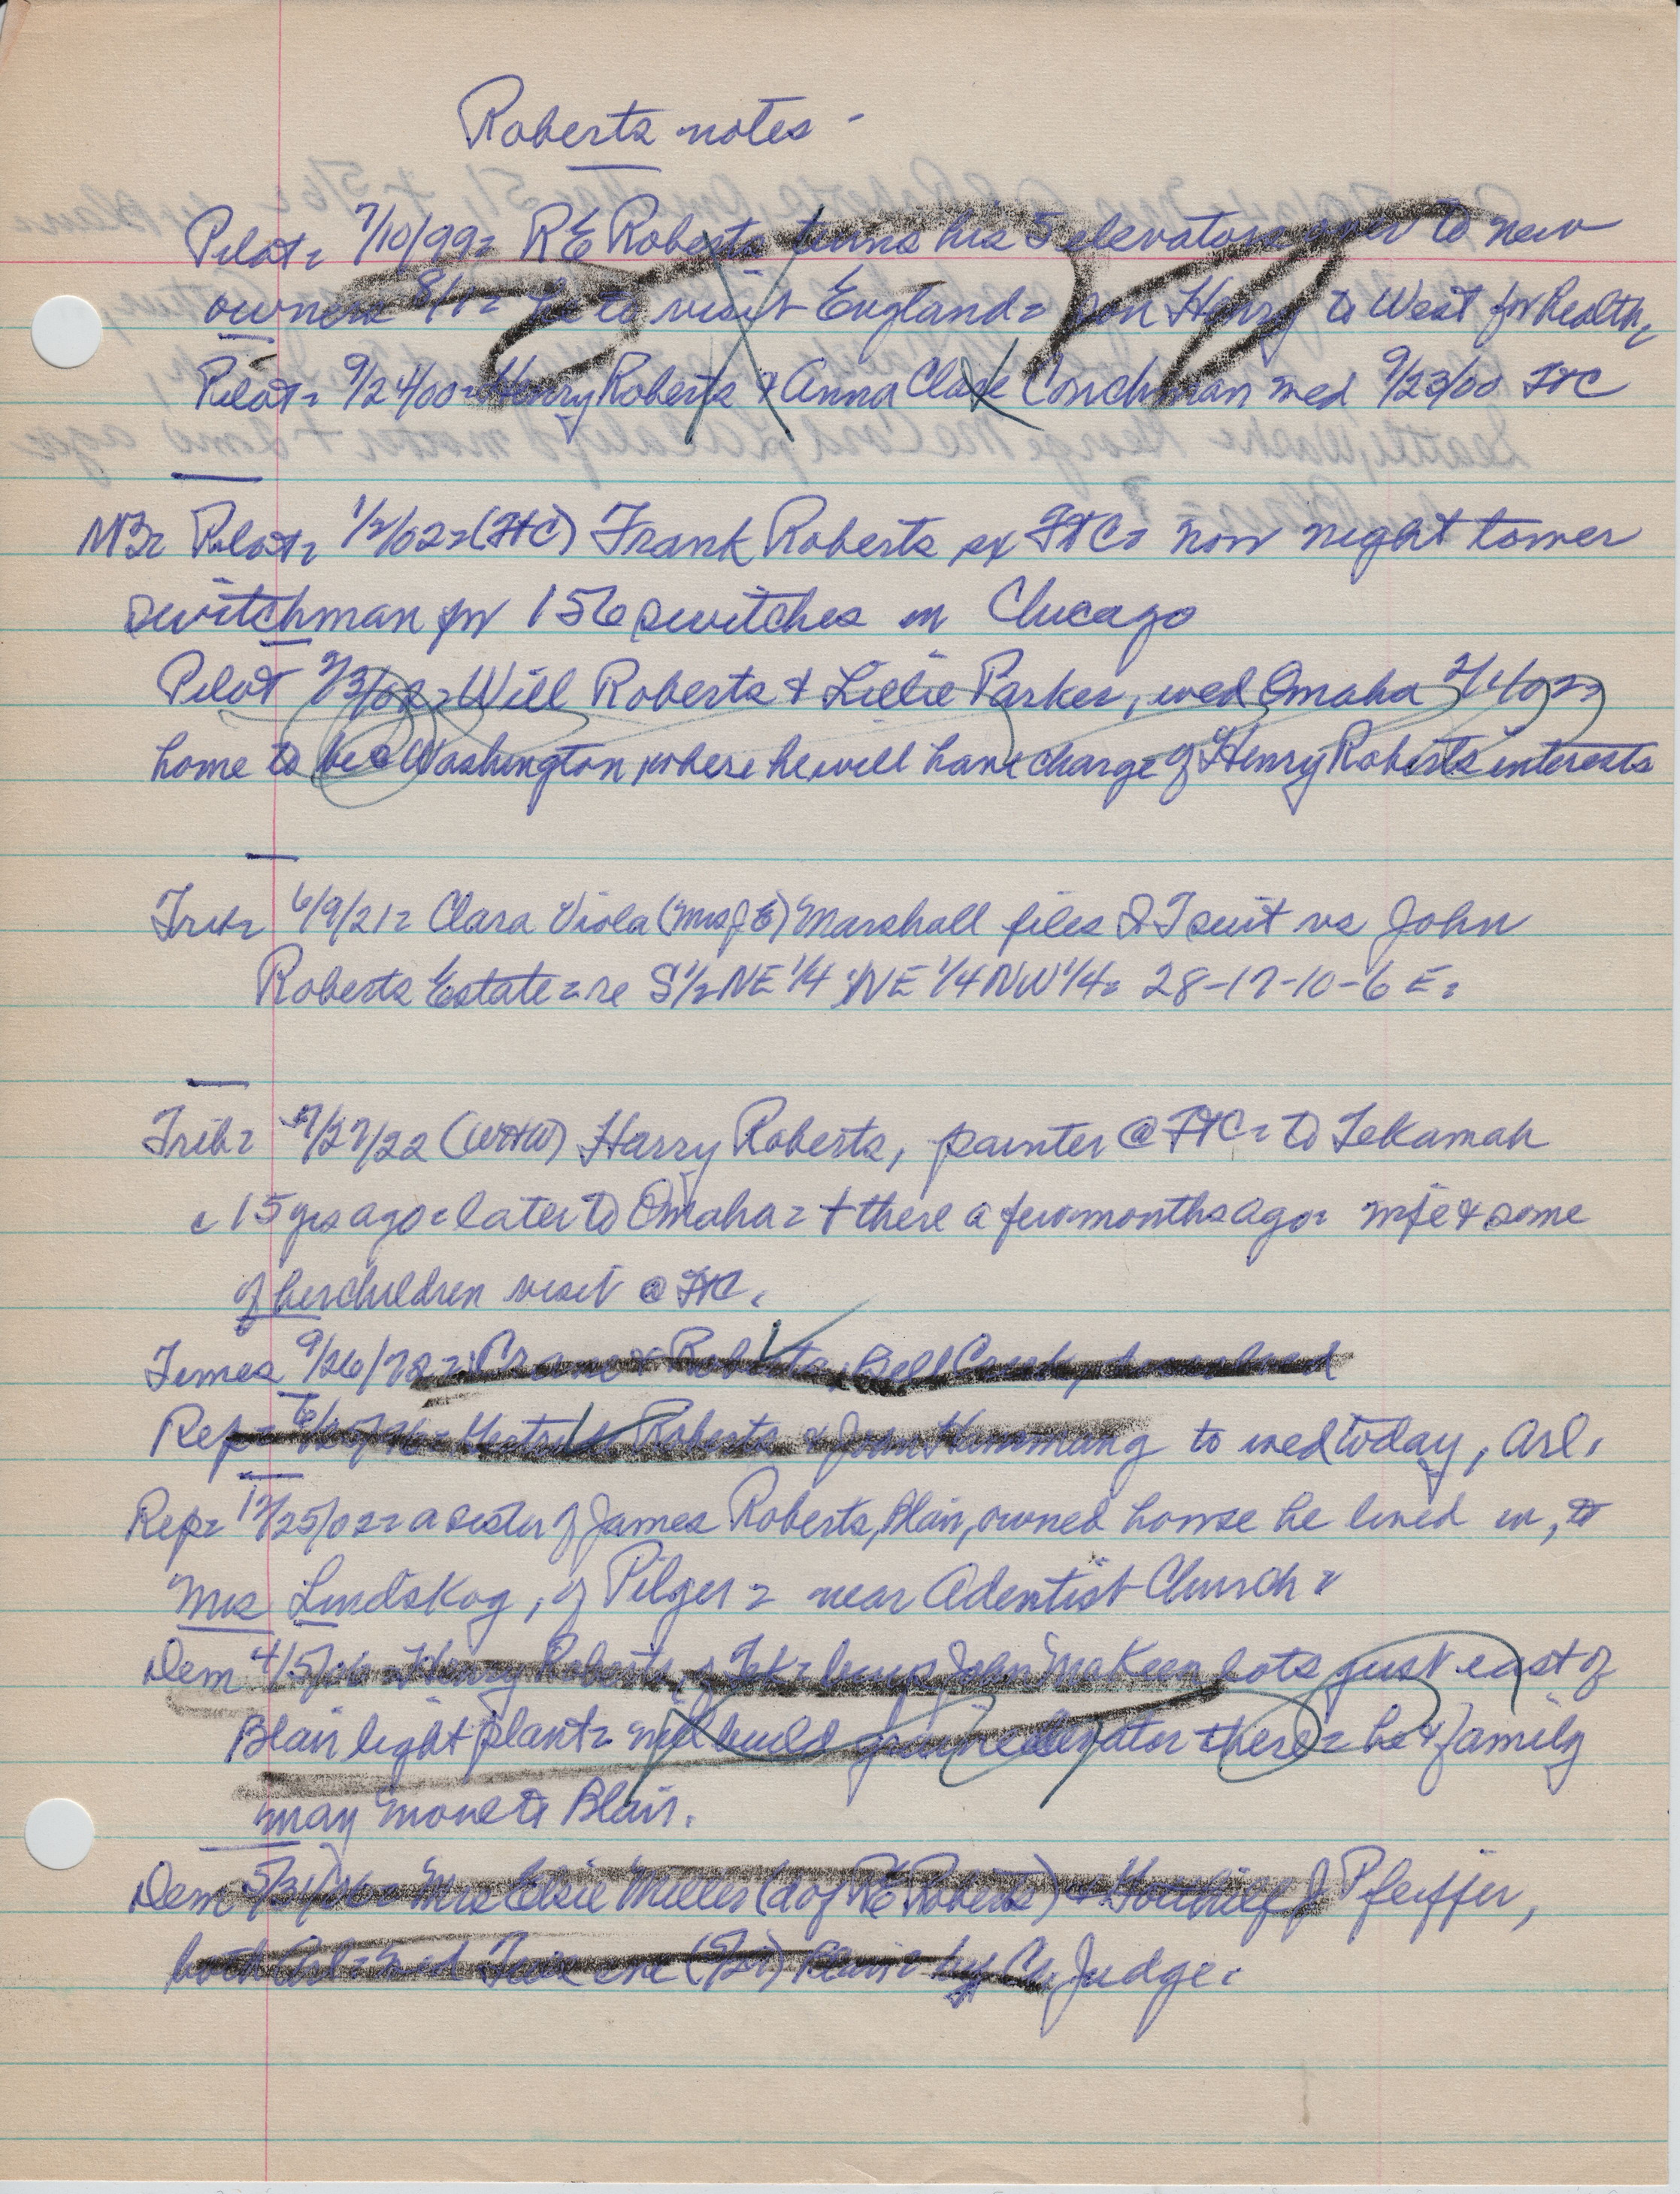 Roberts notes -
Pilot= 7/10/99= RE Roberts turns his 5 elevators over to new
owners 8/1= he to visit England= son Henry to West for health,
Pilot= 9/24/00= Harry Roberts & Anna Clade Conchman med 9/23/00 FtC
Pilot= 1/2/02=(FtC) Frank Roberts ex FtC= now night tower
switchman for 156 switches in Chicago
Pilot 2/3/02= Will Roberts & Lillie Parker, wed Omaha 2/1/02=
home to be Washington where he will have charge of Henry Roberts interests
Trib= 6/9/21= Clara Viola (Mrs J E) Marshall files QT suit vs John
Roberts Estate= re S 1/2 NE 1/4 NE 1/4 NW 1/4= 28-17-10-6 E=
Trib= 7/27/22 (WHW) Harry Roberts, painter @ FtC= to Tekamah
c 15 yrs ago= later to Omaha= + there a few months ago= wife & some
of her children visit @ FtC.
Times 9/26/78= & Roberts, Bell Creek, dissolved
Rep= Roberts & to wed today, Arl.
Rep= 12/25/02= a sister of James Roberts, Blair, owned house he lived in, &
Mrs Lindskog, of Pilger= near Adentist Church=
Dem 4/5/06= Henry Roberts, of Tek= buys John McKeen lots just east of
Blair light plant= will build grain elevator there= he & family
may move to Blair.
Dem Mrs Elsie Miller (d of RE Roberts) & J Pfeiffer,
both Arl= med Blair= by Co Judge=